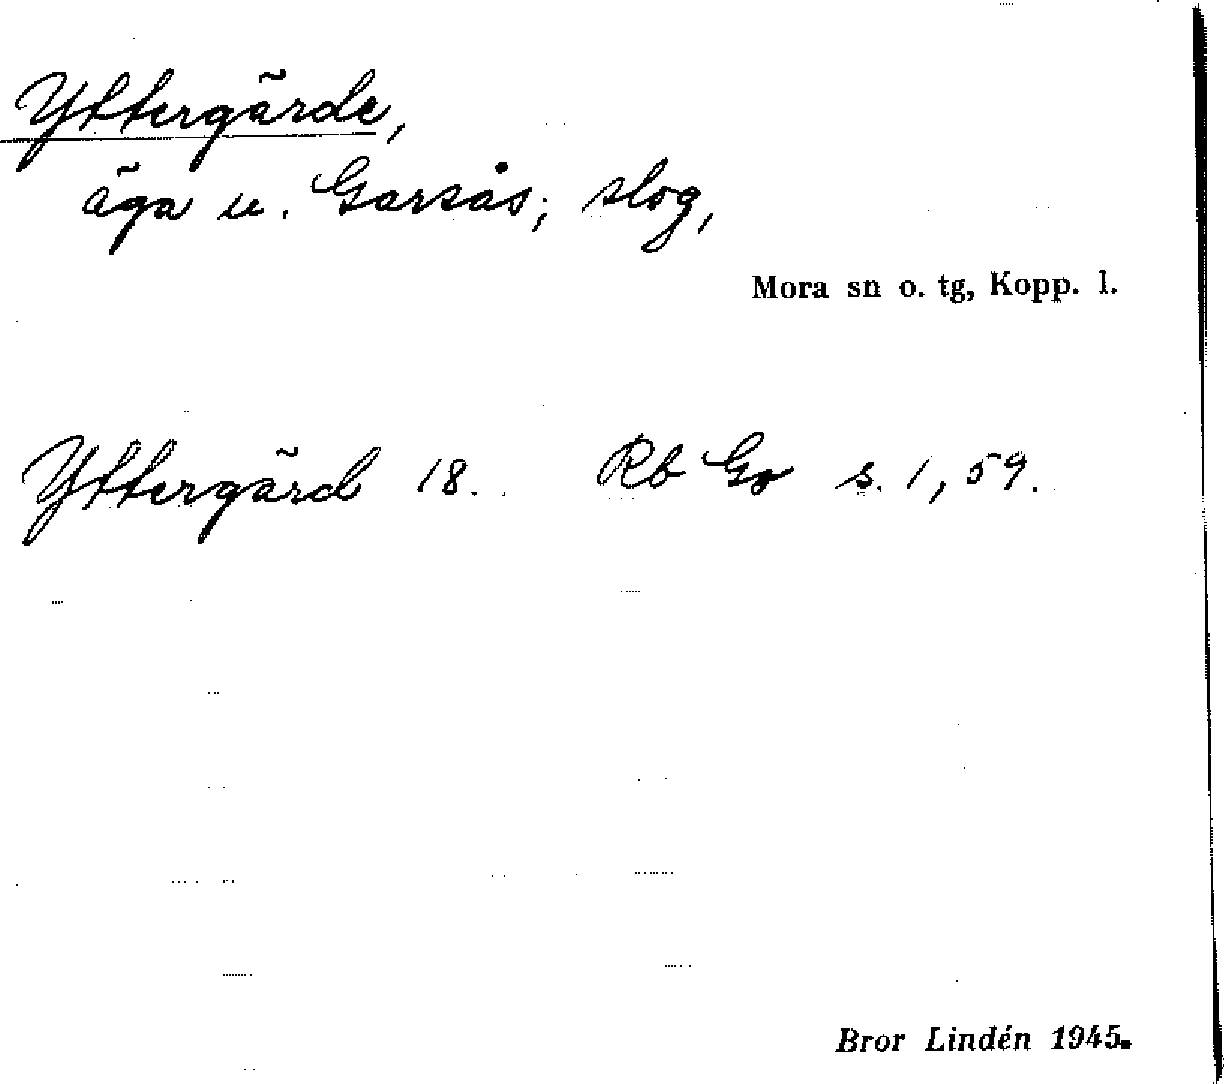 Yttergärde,
äga u. Garsås; slog,
Mora sn o. tg, Kopp. l.
Yttergärd 18. Rb Go s. 1, 59.
Bror Lindén 1945.